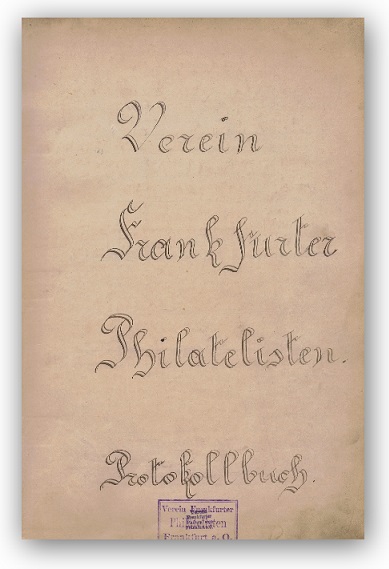 Verein
Frankfurter
Philatelisten.
Protokollbuch.
Verein Frankfurter
Frankfurt a. O.